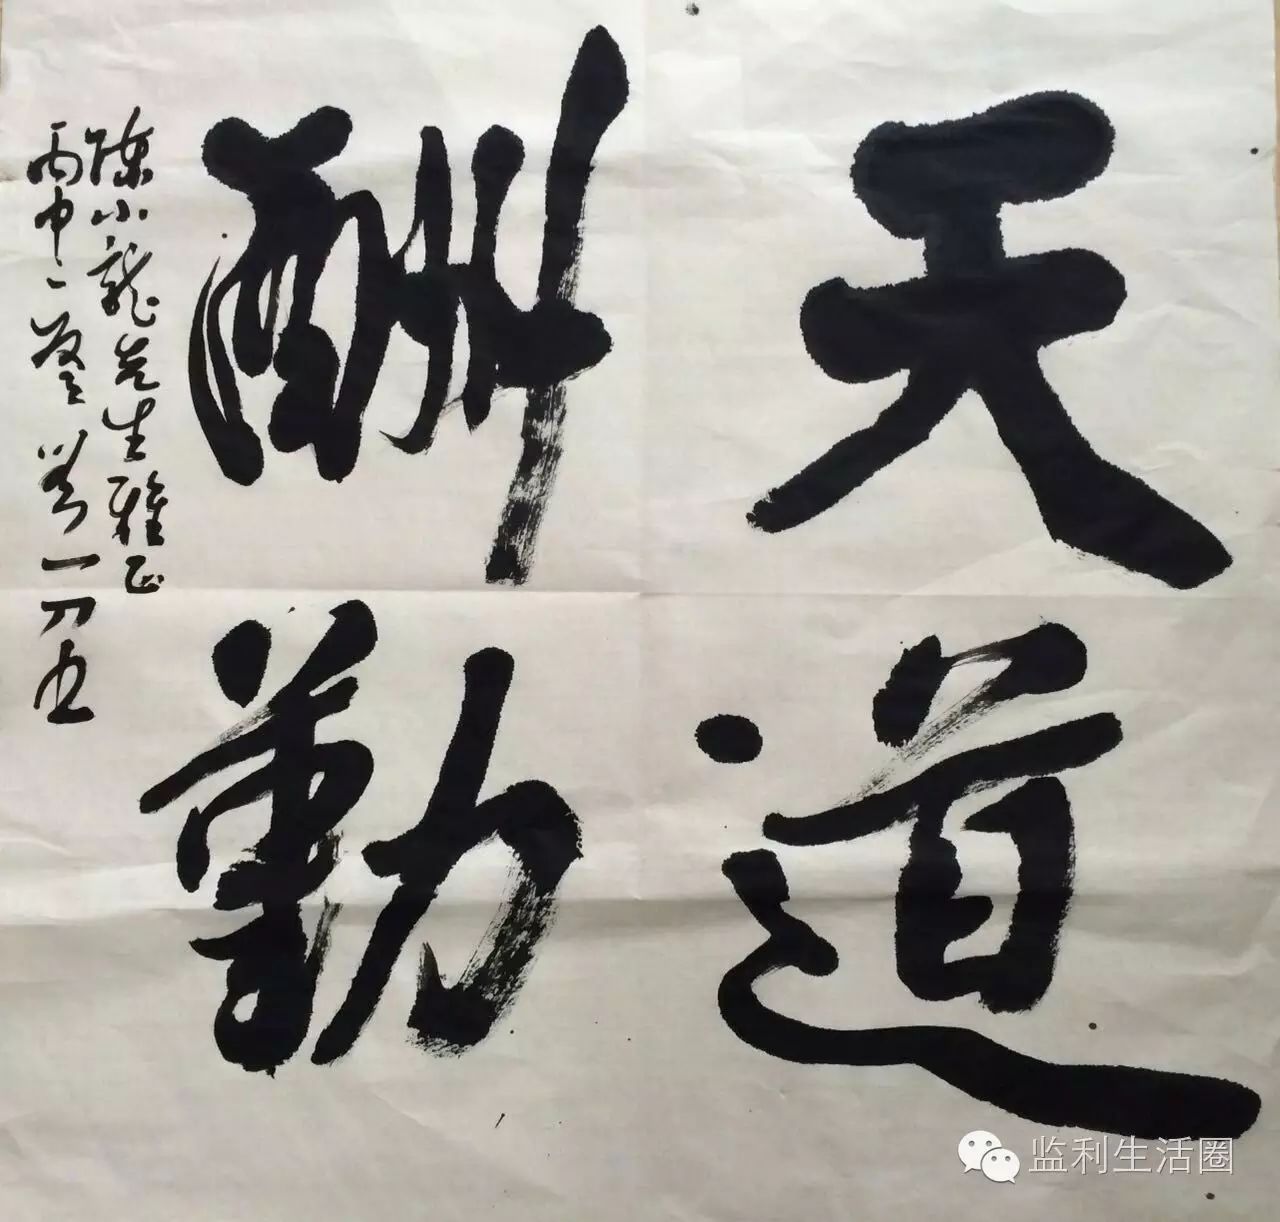 天道
酬勤
陈小龙先生雅正
丙申
一刀
监利生活圈